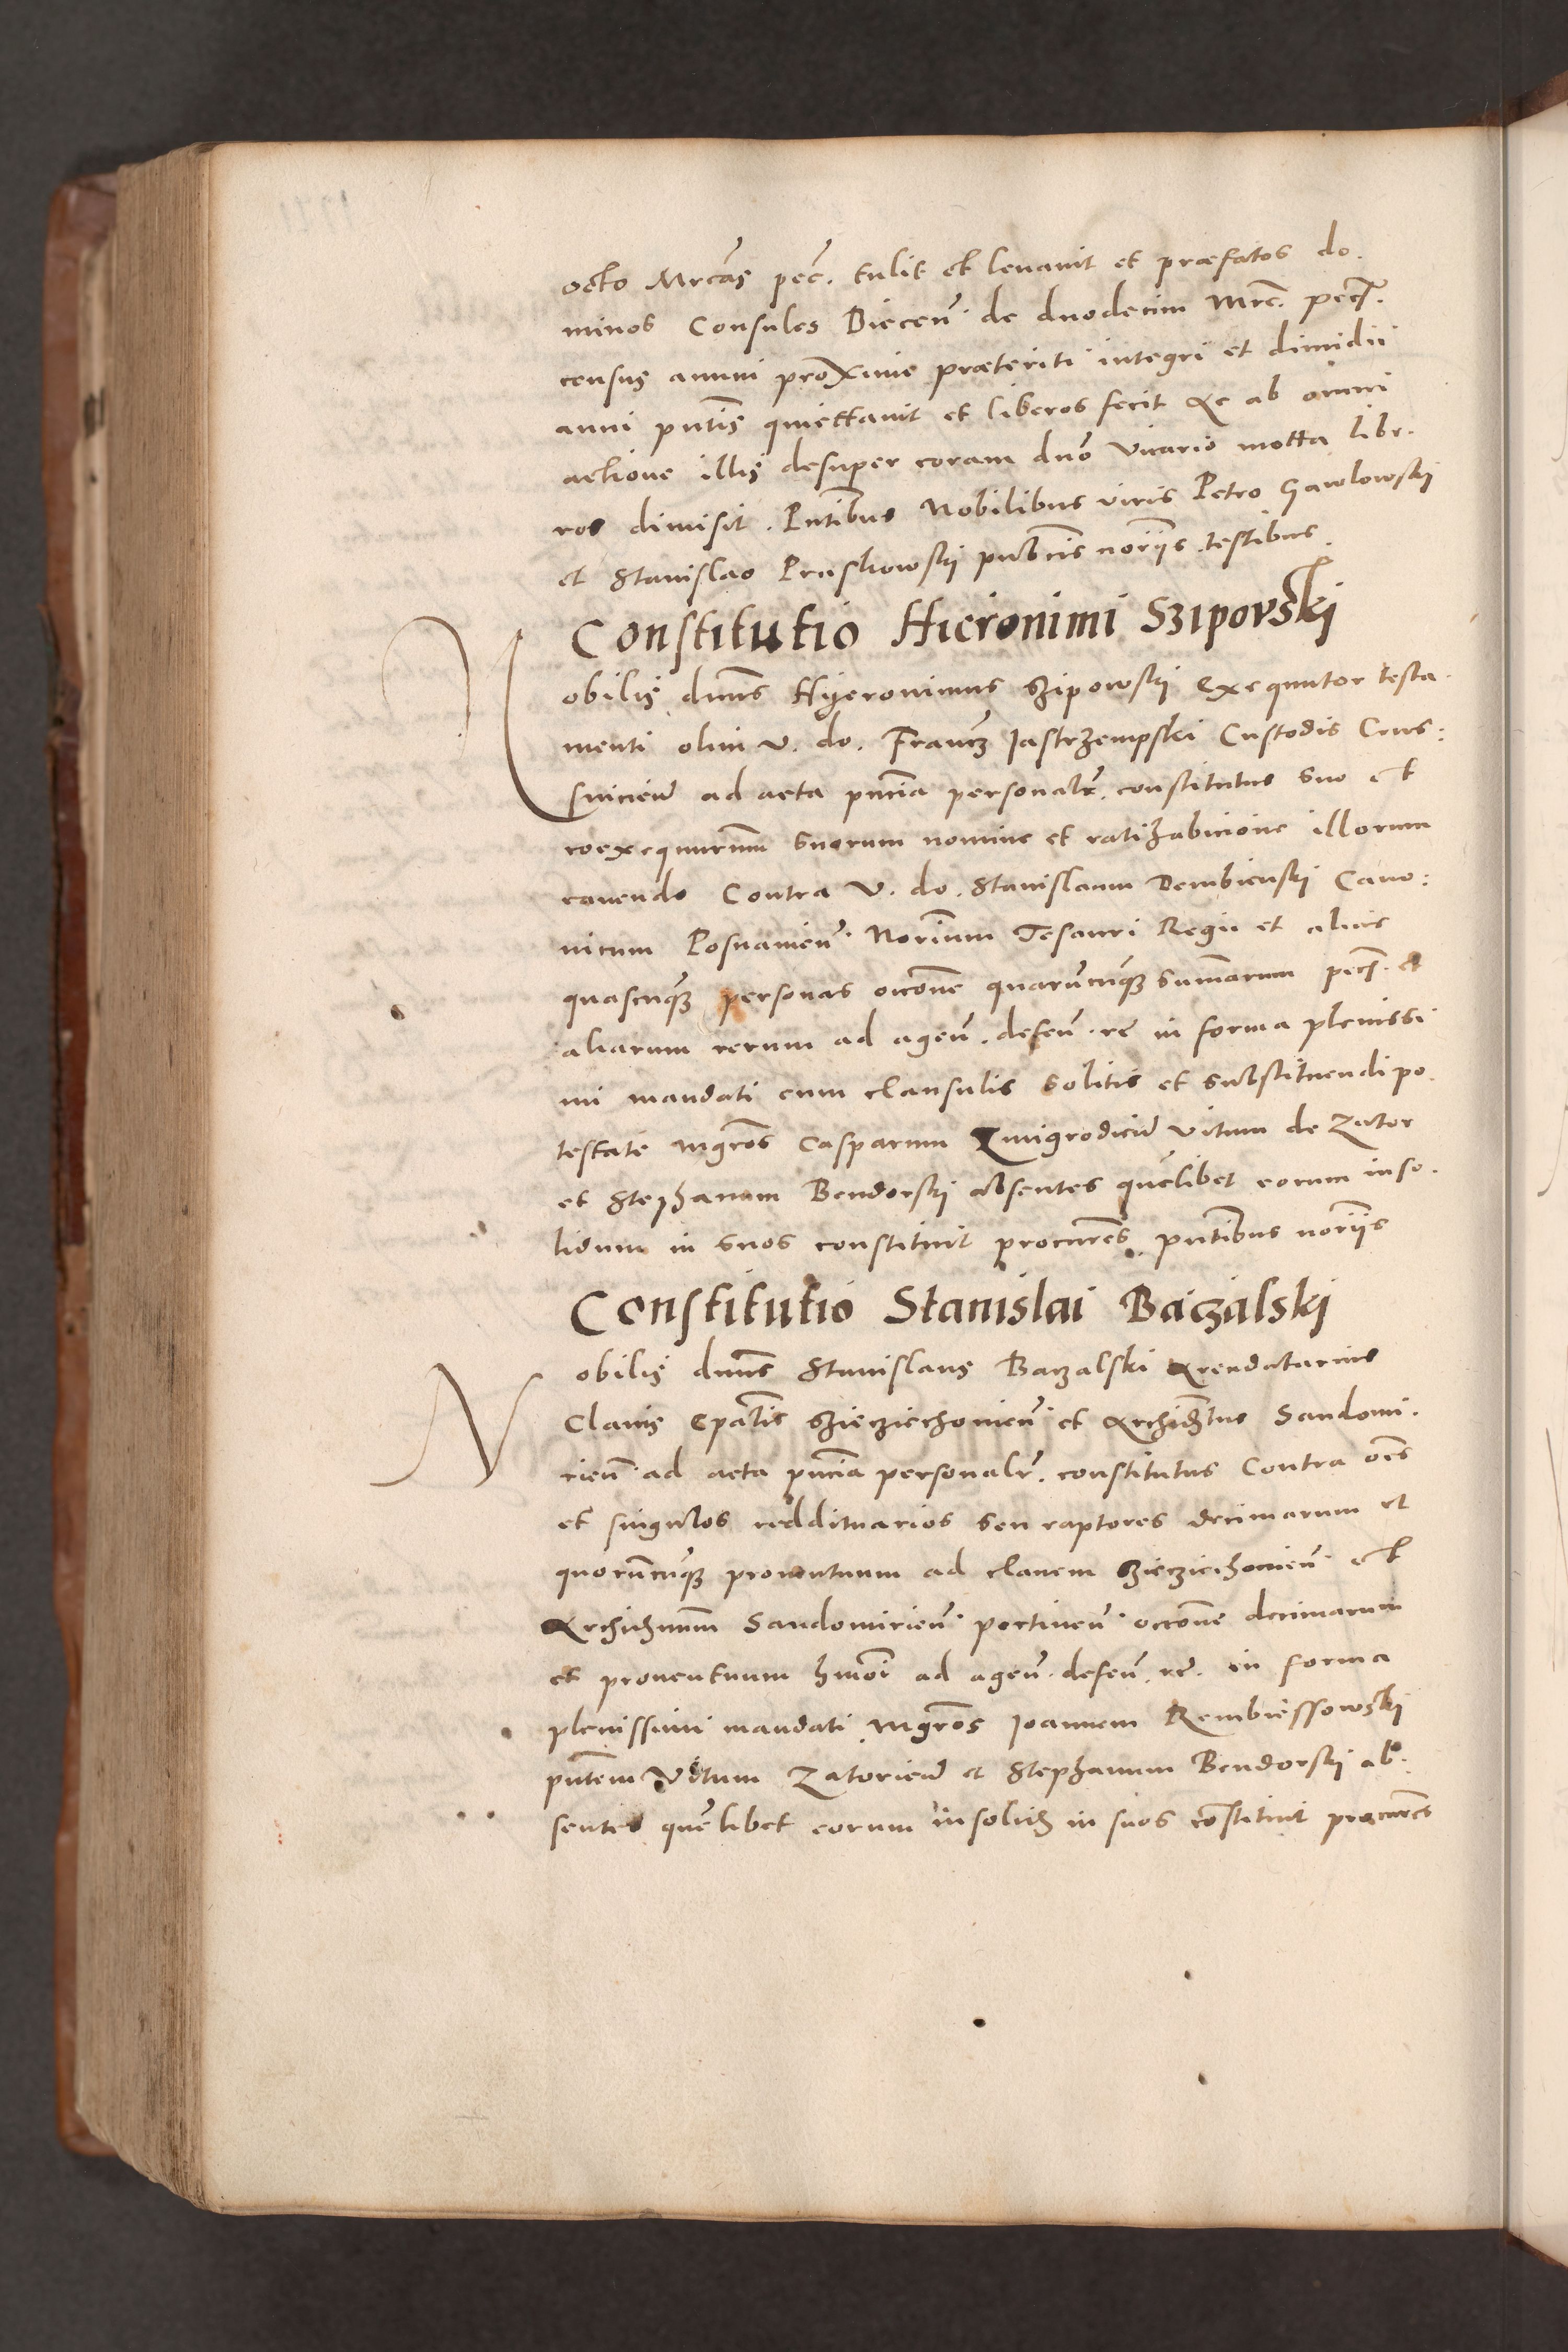 octo Mrcas pec. tulit et levavit et præfatos do.
minos Consules Diecen. de duodecim Mrc. pec.
census anni proxime præteriti integri et dimidii
anni pntis quiettavit et liberos fecit Ac ab omni
actione illis desuper coram dno vicario motta libe.
ros dimisit. Pntibus Nobilibus viris Petro Gawlowskij
et Stanislao Pruskowskij publicis noriis testibus.
Constitutio Hieronimi Sziporski
Nobilis dnus Hyeronimus Szipowskij Exequutor testa.
menti olim V. do. Francz Jastrzempski Custodis Crus:
suicien ad acta pncia personalr. constitutus suo et
coexequurum suorum nomine et ratihabicione illorum
cavendo Contra V. do. Stanislaum Dembienskij Cano:
nicum Posnanien. Norium Tesauri Regii et alias
quascunq personas occone quarumcunq summarum pec. et
aliarum rerum ad agen. defen. rc in forma plenissi
mi mandati cum clausulis solitis et substituendi po.
testate Mgros Casparum Zmigrodicen Vitum de Zator
et Stephanum Bendorskij absentes quemlibet eorum inso.
lidum in suos constituit procures pntibus noriis
Constitutio Stanislai Baczalski
Nobilis dnus Stanislaus Baczalski Arendatarius
Clavis Epalis Kzieczichonien. et Archidtus Sandomi.
rien. ad acta pncia personalr. constitutus Contra oes
et singulos reddituarios seu raptores decimarum et
quorumcunq proventuum ad clavem Kzieczichonien. et
Archidnum Sandomirien. pertinen. occone decimarum
et proventuum hmoi ad agen. defen. rc. in forma
plenissimi mandati Mgros Joannem Rembiessowskij
pntem Vitum Zatorien et Stephanum Bendorskij ab.
sentes quemlibet eorum insolid in suos constituit procures